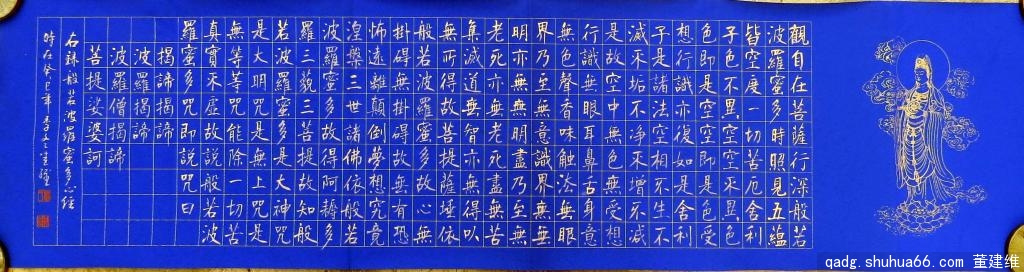 觀自在菩薩行深般若
波羅蜜多時照見五蘊
皆空度一切苦厄舍利
子色不異空空不異色
色即是空空即是色受
想行識亦復如是舍利
子是諸法空相不生不
滅不垢不淨不增不減
是故空中無色無受想
行識無眼耳鼻舌身意
無色聲香味觸法無眼
界乃至無意識界無無
明亦無無明盡乃至無
老死亦無老死盡無苦
集滅道無智亦無得以
無所得故菩提薩埵依
般若波羅蜜多故心無
掛礙無掛礙故無有恐
怖遠離顛倒夢想究竟
涅槃三世諸佛依般若
波羅蜜多故得阿耨多
羅三藐三菩提故知般
若波羅蜜多是大神咒
是大明咒是無上咒是
無等等咒能除一切苦
真實不虛故說般若波
羅蜜多咒即說咒曰
揭諦揭諦
波羅揭諦
波羅僧揭諦
菩提娑婆訶
右錄般若波羅蜜多心經
時在癸巳年
qadg.shuhua66.com 董建维